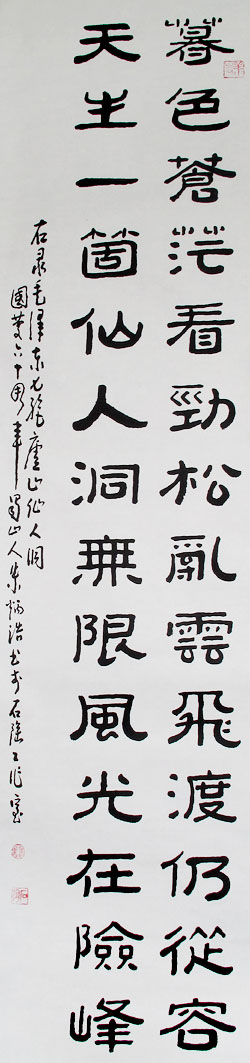 暮色蒼茫看勁松亂雲飛渡仍從容
天生一箇仙人洞無限風光在險峰
右录毛澤东七絶廬山仙人洞
國慶六十周年蜀山人朱炳浩书于石隐工作室